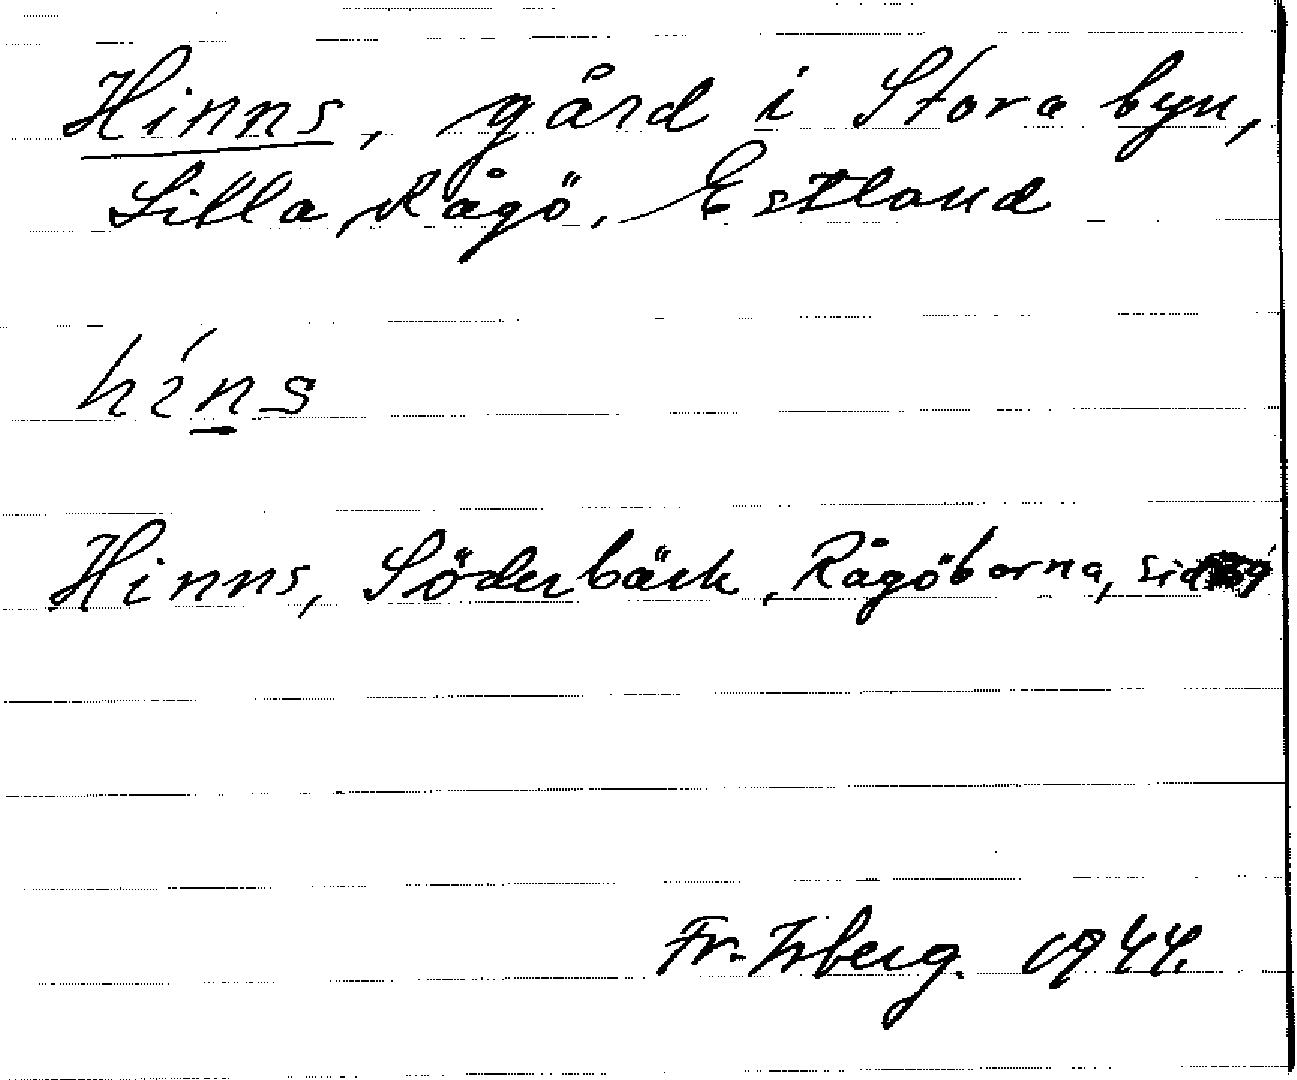 Hinns, gård i Stora byn,
Lilla Rågö, Estland
híns
Hinns, Söderbäck, Rågöborna,
Fr. Isberg. 1944.